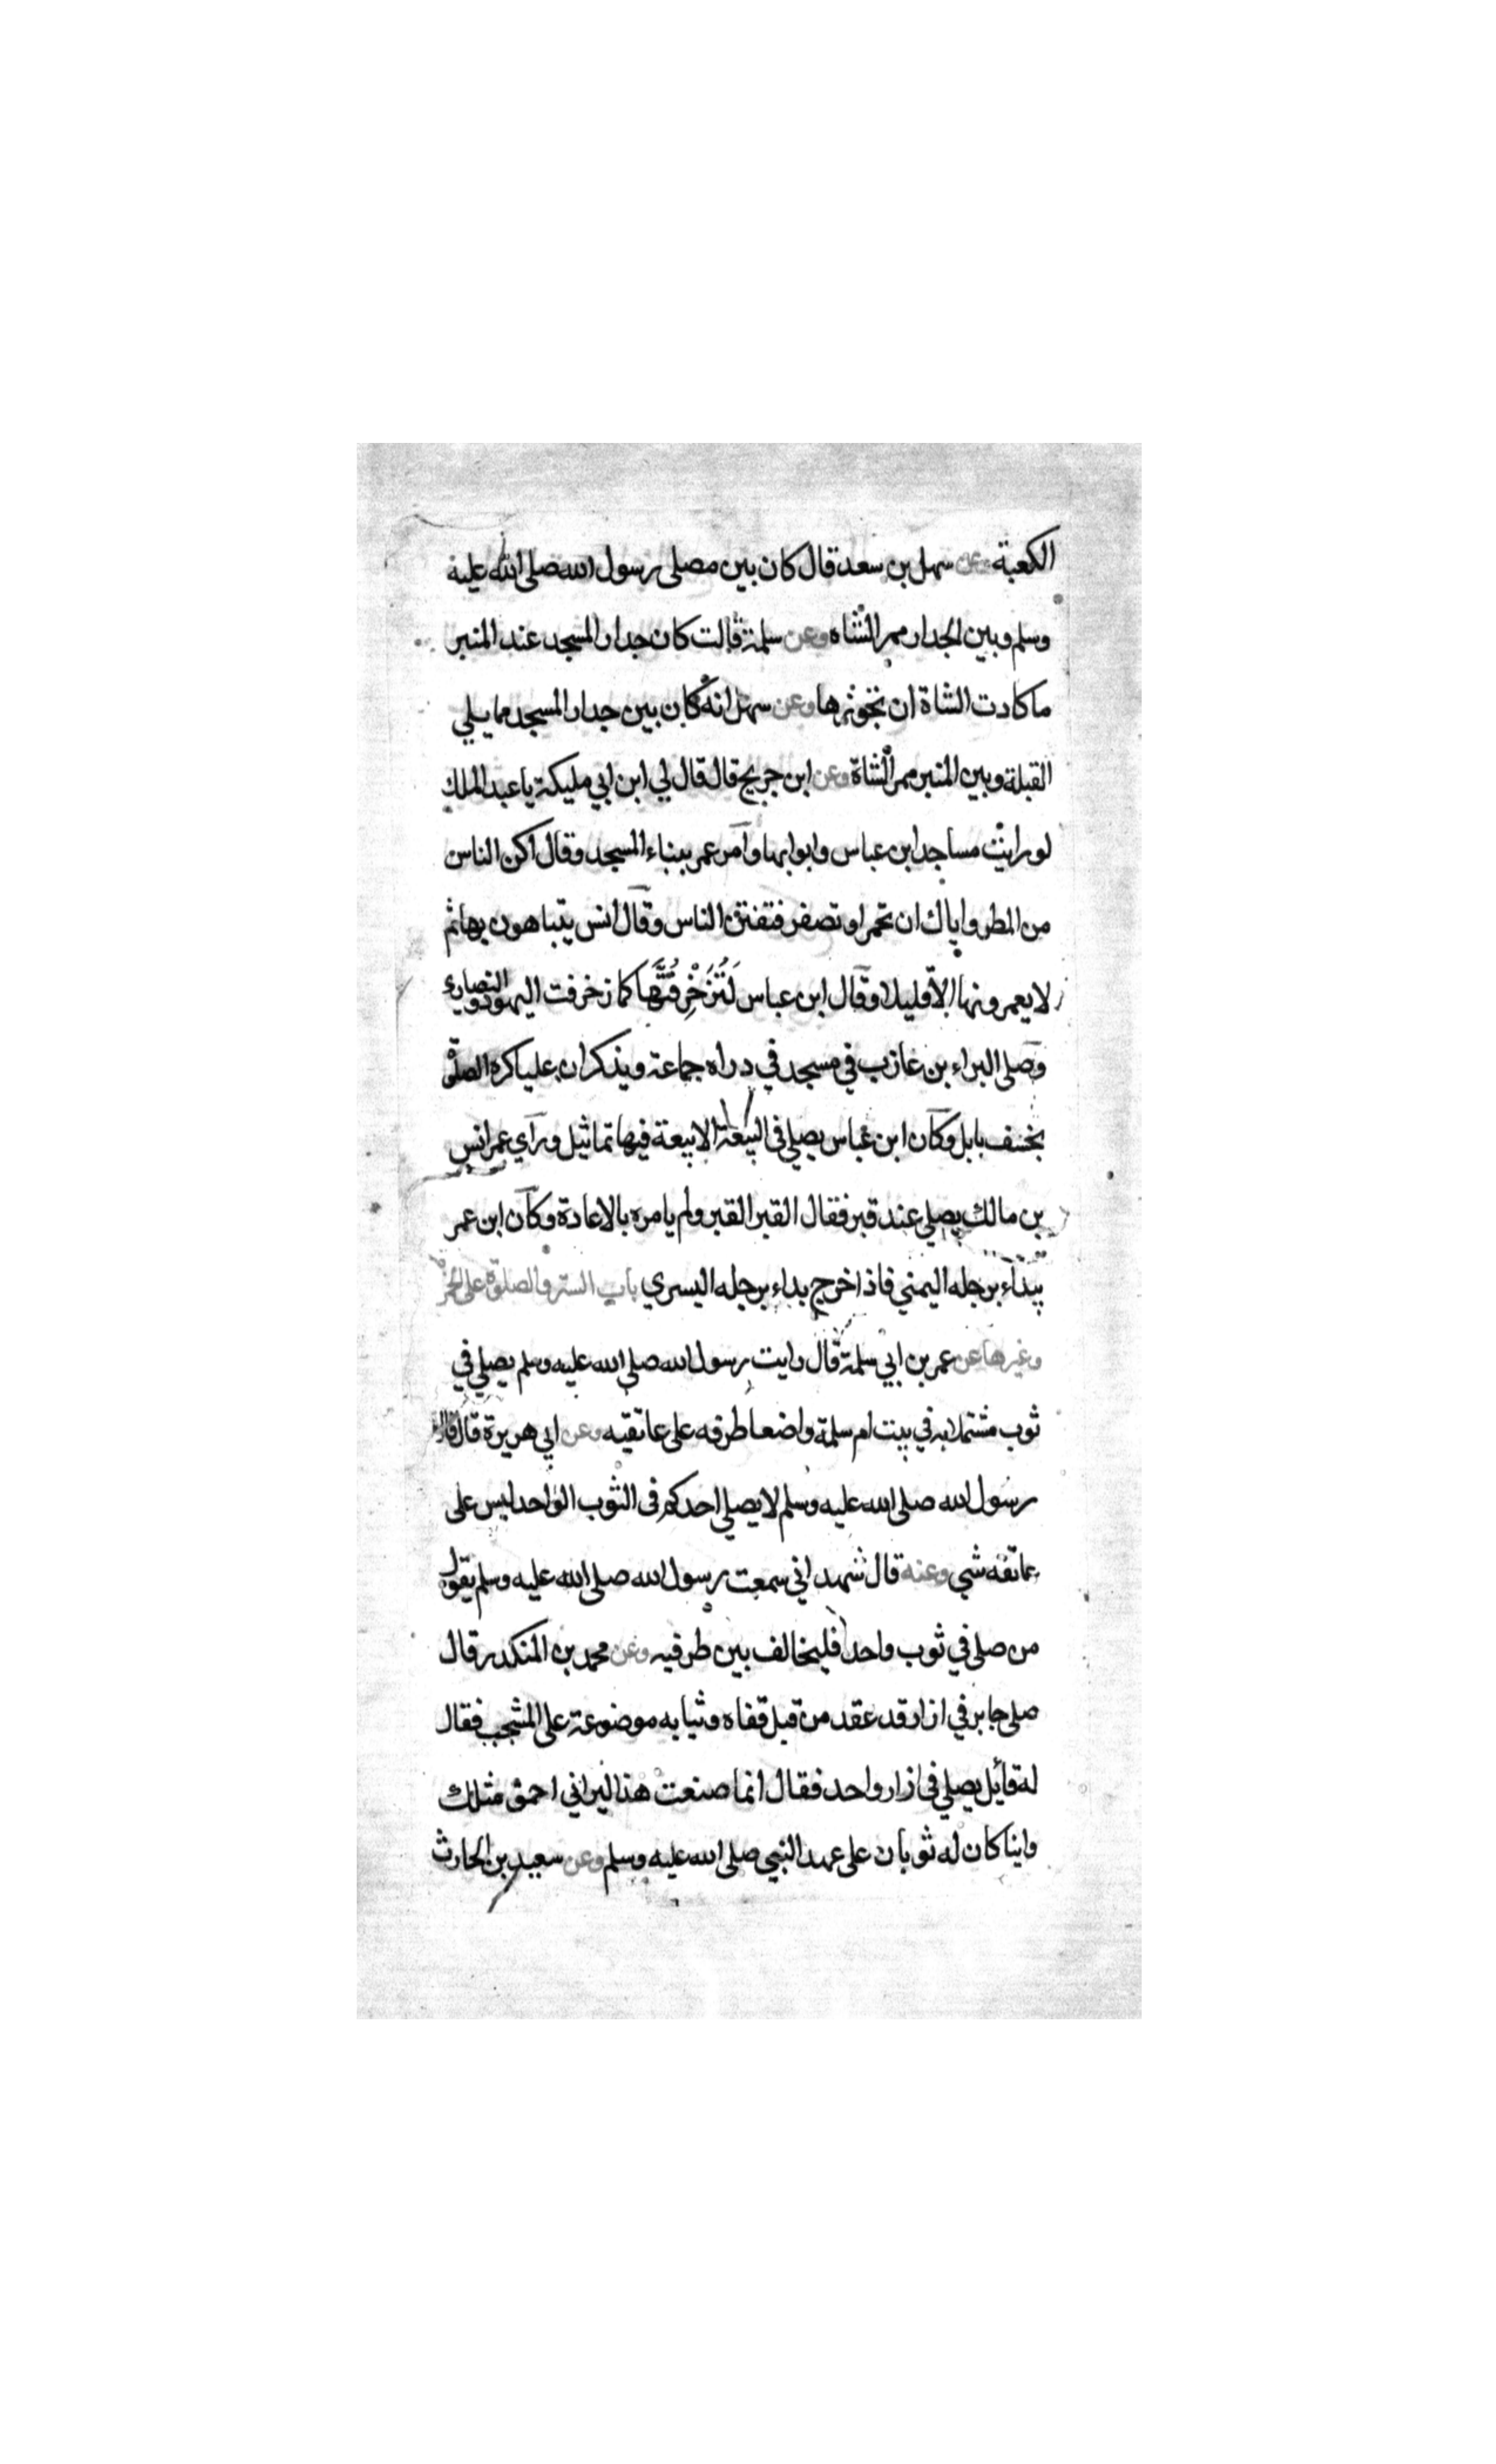 الكعبة وعن سهل بن سعد قال كان بين مصلى رسول الله صلى الله عليه
وسلم وبين الجدار ممر الشاه وعن سلمة قالت كان جدار المسجد عند المنبر
ما كادت الشاة ان تجوزها وعن سهل انه كان بين جدار المسجد مما يلي
القبلة وبين المنبر ممر الشاة وعن ابن جريج قال قال لي ابن ابي مليكة يا عبد الملك
لو رايت مساجد ابن عباس وابوابها وامر عمر ببناء المسجد وقال اكن الناس
من المطر واياك ان تحمر او تصفر فتفتن الناس وقال انس يتباهون بها ثم
لا يعمرونها الا قليلا وقال ابن عباس لَتُزَخْرِفُنَّهَا كما زخرفت اليهود والنصارى
وصلى البراء بن عازب في مسجد في داره جماعة ويذكر ان عليا كره الصلوة
بخسف بابل وكان ابن عباس يصلي في البيعة الا بيعة فيها تماثيل وراي عمر انس
بن مالك يصلي عند قبر فقال القبر القبر ولم يامره بالاعادة وكان ابن عمر
يبداء برجله اليمني فاذا خرج بداء برجله اليسري باب الستر والصلوة على الخمر
وغيرها عن عمر بن ابي سلمة قال رايت رسول الله صلى الله عليه وسلم يصلي في
ثوب مشتملا به في بيت ام سلمة واضعا طرفه على عاتقيه وعن ابي هريرة قال قال
رسول الله صلى الله عليه وسلم لا يصلي احدكم في الثوب الواحد ليس على
عاتقه شي وعنه قال شهد اني سمعت رسول الله صلى الله عليه وسلم يقول
من صلى في ثوب واحد فليخالف بين طرفيه وعن محمد بن المنكدر قال
صلى جابر في ازار قد عقد من قبل قفاه وثيابه موضوعة على المشجب فقال
له قايل يصلي في ازار واحد فقال انما صنعت هذا ليراني احمق مثلك
واينا كان له ثوبان على عهد النبي صلى الله عليه وسلم وعن سعيد بن الحارث